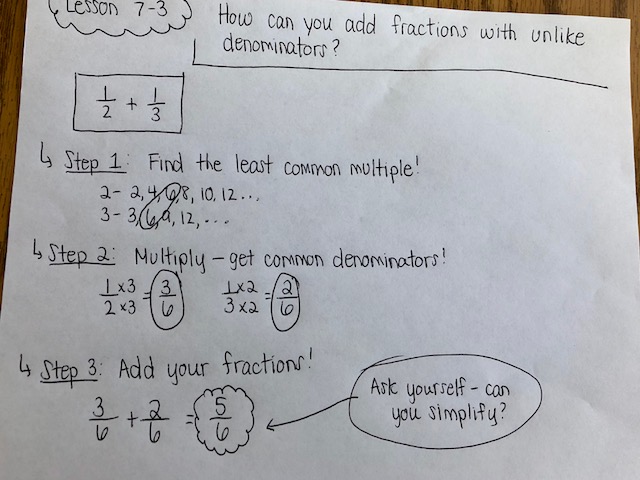 Lesson 7-3
How can you add fractions with unlike
denominators?
1/2 + 1/3
↳ Step 1: Find the least common multiple!
2 - 2, 4, 6, 8, 10, 12...
3 - 3, 6, 9, 12, ...
↳ Step 2: Multiply - get common denominators!
1 x3 / 2 x3 = 3/6    1 x2 / 3 x2 = 2/6
↳ Step 3: Add your fractions!
3/6 + 2/6 = 5/6
Ask yourself - can
you simplify?